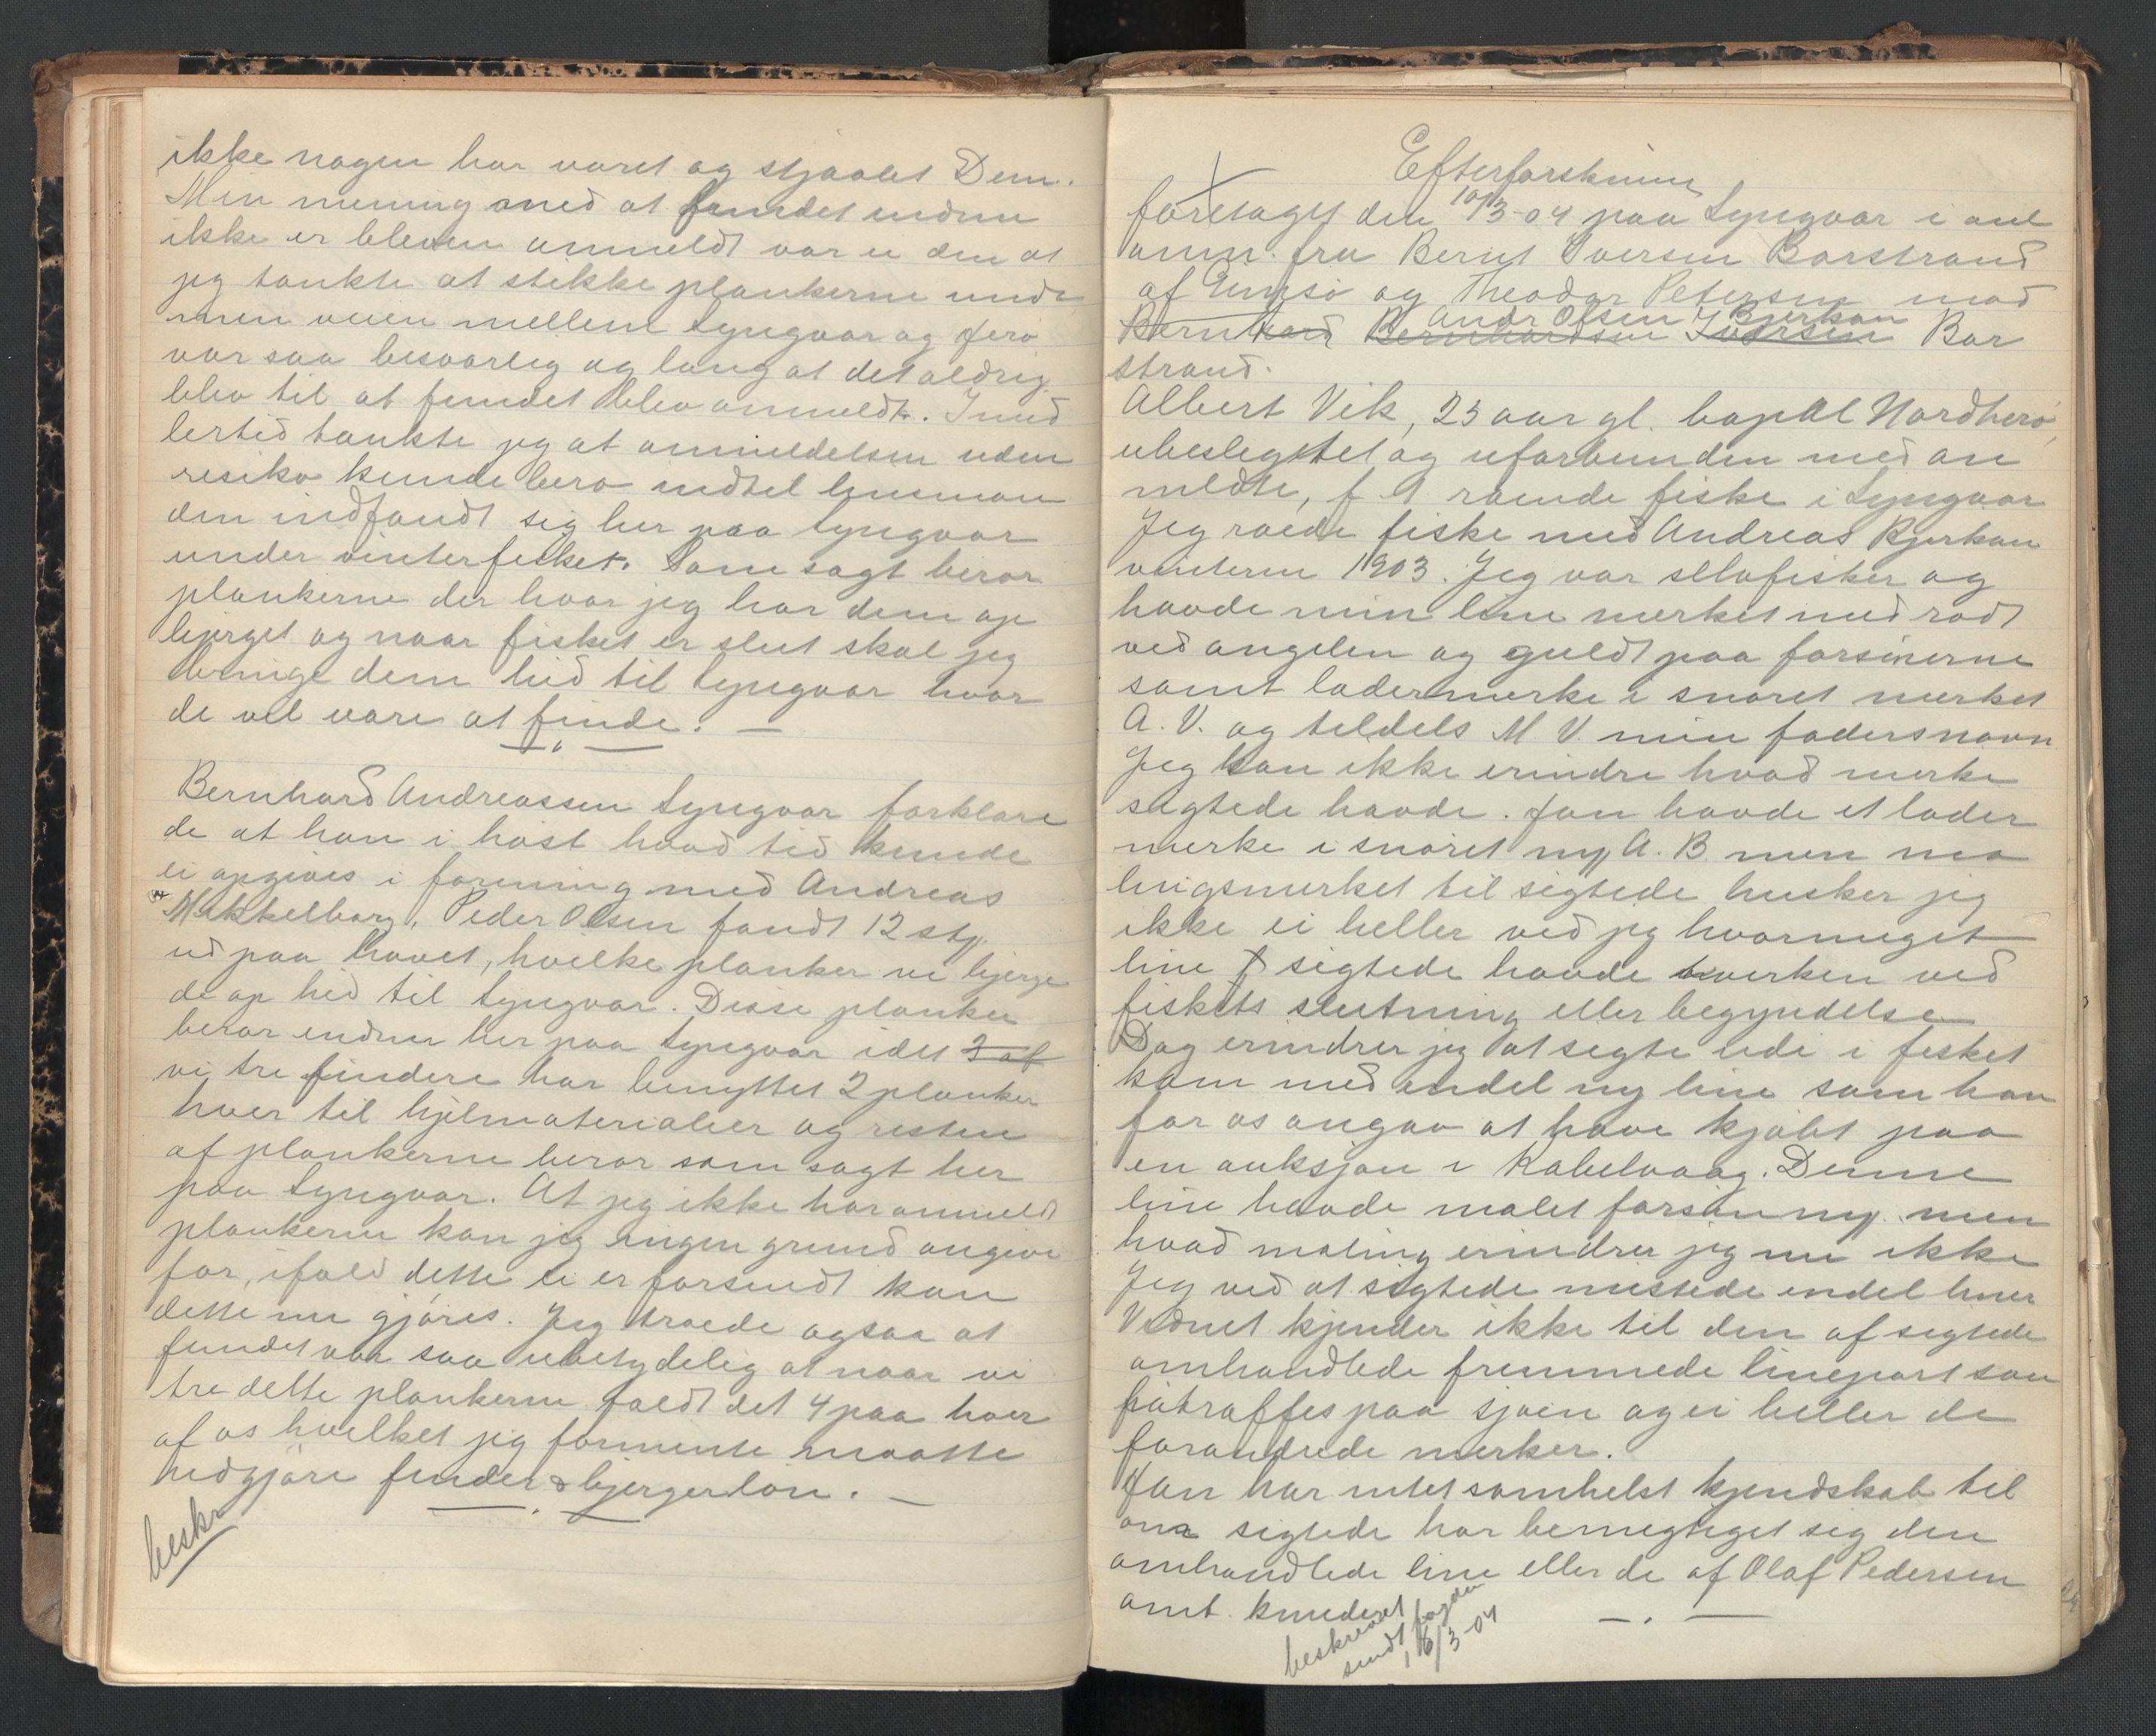 ikke nogen har været og stjaalet Dem.
Min mening med at fundet endnu
ikke er bleven anmeldt var ei den at
jeg tænkte at stikke plankerne unda
men veien mellem Lyngvær og
var saa besværlig og lang at det aldrig
blev til at fundet blev anmeldt. Imid
lertid tænkte jeg at anmeldelsen uden
resiko kunde bero indtil lensman
den indfandt sig her paa Lyngvær
under vinterfisket. Som sagt beror
plankerne der hvor jeg har dem op
bjerget og naar fisket er slut skal jeg
bringe dem hid til Lyngvær hvor
de vil være at finde. —
Bernhard Andreassen Lyngvær forklare
de at han i høst hvad tid kunde
ei opgives i forening med Andreas
Mikkelborg, Peder Olsen fandt 12 stp.
ud paa havet, hvilke planker vi bjerge
de op hid til Lyngvær. Disse planker
beror endnu her paa Lyngvær idet 2 af
vi tre findere har benyttet 2 planker
hver til hjelmaterialier og resten
af plankerne beror som sagt her
paa Lyngvær. At jeg ikke har anmeldt
plankerne kan jeg ingen grund angive
for, ifald dette ei er forsendt kan
dette nu gjøres. Jeg troede ogsaa at
fundet var saa ubetydelig at naar vi
tre delte plankerne faldt det 4 paa hver
af os hvilket jeg formente maatte
medgjøre finder & bjergerløn. —
beskr
Efterforskning
foretaget den 10/3-04 paa Lyngvær i anl
anm. fra Bernt Iversen Barstrand
af Gimsø og Theodor Petersen mod
Andr Olsen Bjerkan
Bernhard Bernhardsen Iversen Bar
strand.
Albert Vik, 23 aar gl. bopæl Nordherø,
ubeslegtet og uforbunden med an
meldte, f. t roende fiske i Lyngvær
Jeg roede fiske med Andreas Bjerkan
vinteren 1903. Jeg var selvfisker og
havde min line merket med rødt
ved angelen og guldt paa forsinerne
samt lædermerke i snøret merket
A. V. og tildels M V. min faders navn
Jeg kan ikke erindre hvad merke
sigtede havde. Han havde et læder
merke i snøret mp A. B. men ma
lingsmerket til sigtede husker jeg
ikke ei heller ved jeg hvormeget
line sigtede havde hverken ved
fiskets slutning eller begyndelse
Dog erindrer jeg at sigte ude i fisket
kom med endel ny line som han
for os angav at have kjøbt paa
en auksjon i Kabelvaag. Denne
line havde malet forsøn mp. men
hvad maling erindrer jeg nu ikke
Jeg ved at sigtede mistede endel liner
Vidnet kjender ikke til den af sigtede
omhandlede fremmede linepart som
paatraffes paa sjøen og ei heller de
forandrede merker.
Han har intet somhelst kjendskab til
om sigtede har bemegtiget sig den
omhandlede line eller de af Olaf Pedersen
omt.
beskrevet
sendt fogden
16/3-04